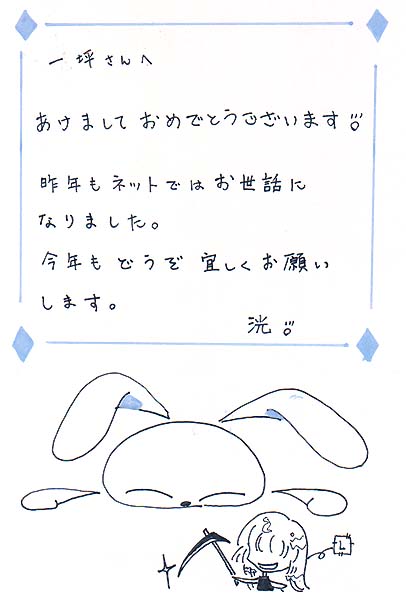 一坪さんへ
あけましておめでとうございます
昨年もネットではお世話に
なりました。
今年もどうぞ宜しくお願い
します。
洸
L